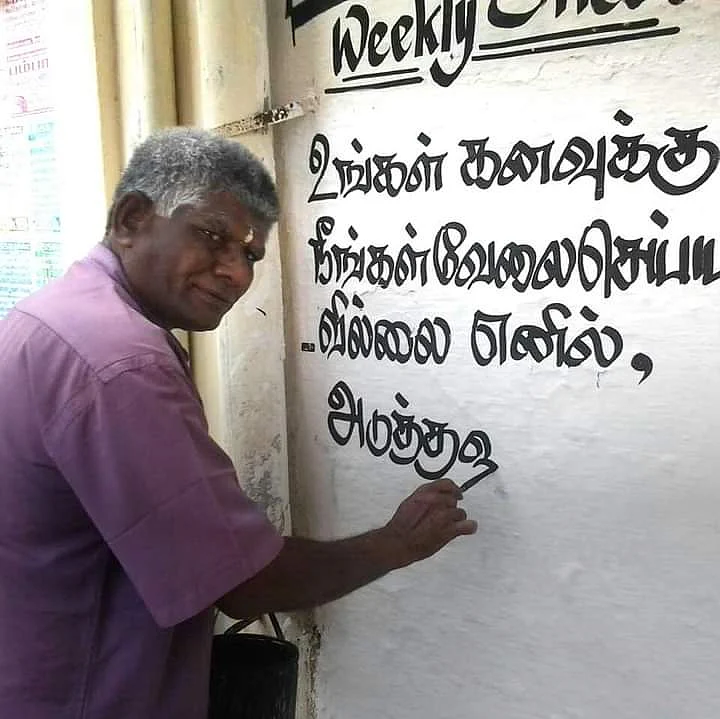 Weekly
உங்கள் கனவுக்கு
நீங்கள் வேலை செய்ய
வில்லை எனில்,
அடுத்தவ